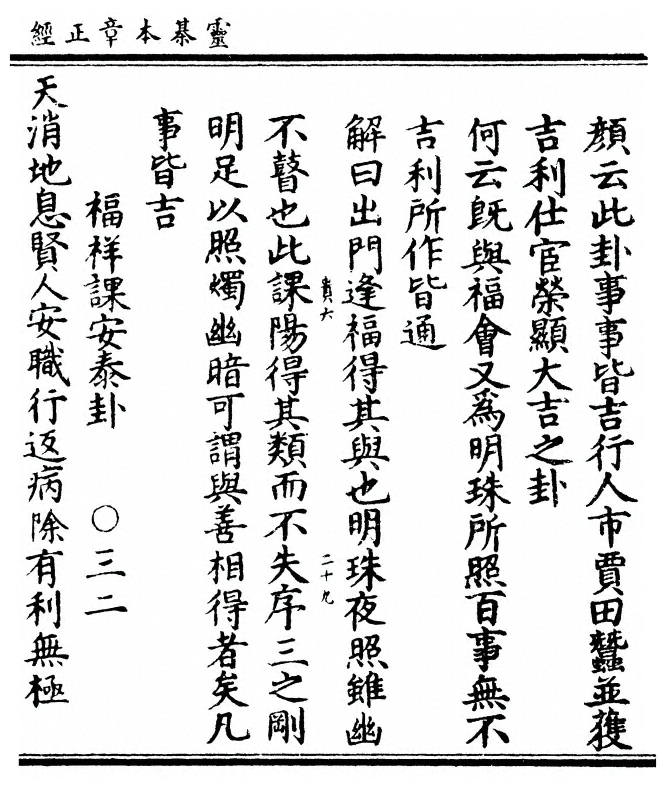 靈棊本章正經
顏云此卦事事皆吉行人市賈田蠶並獲
吉利仕宦榮顯大吉之卦
何云旣與福會又為明珠所照百事無不
吉利所作皆通
解曰出門逢福得其與也明珠夜照雖幽
不瞽也此課陽得其類而不失序三之剛
二十九
明足以照燭幽暗可謂與善相得者矣凡
事皆吉
福祥課安泰卦 〇三二
天消地息賢人安職行返病除有利無極